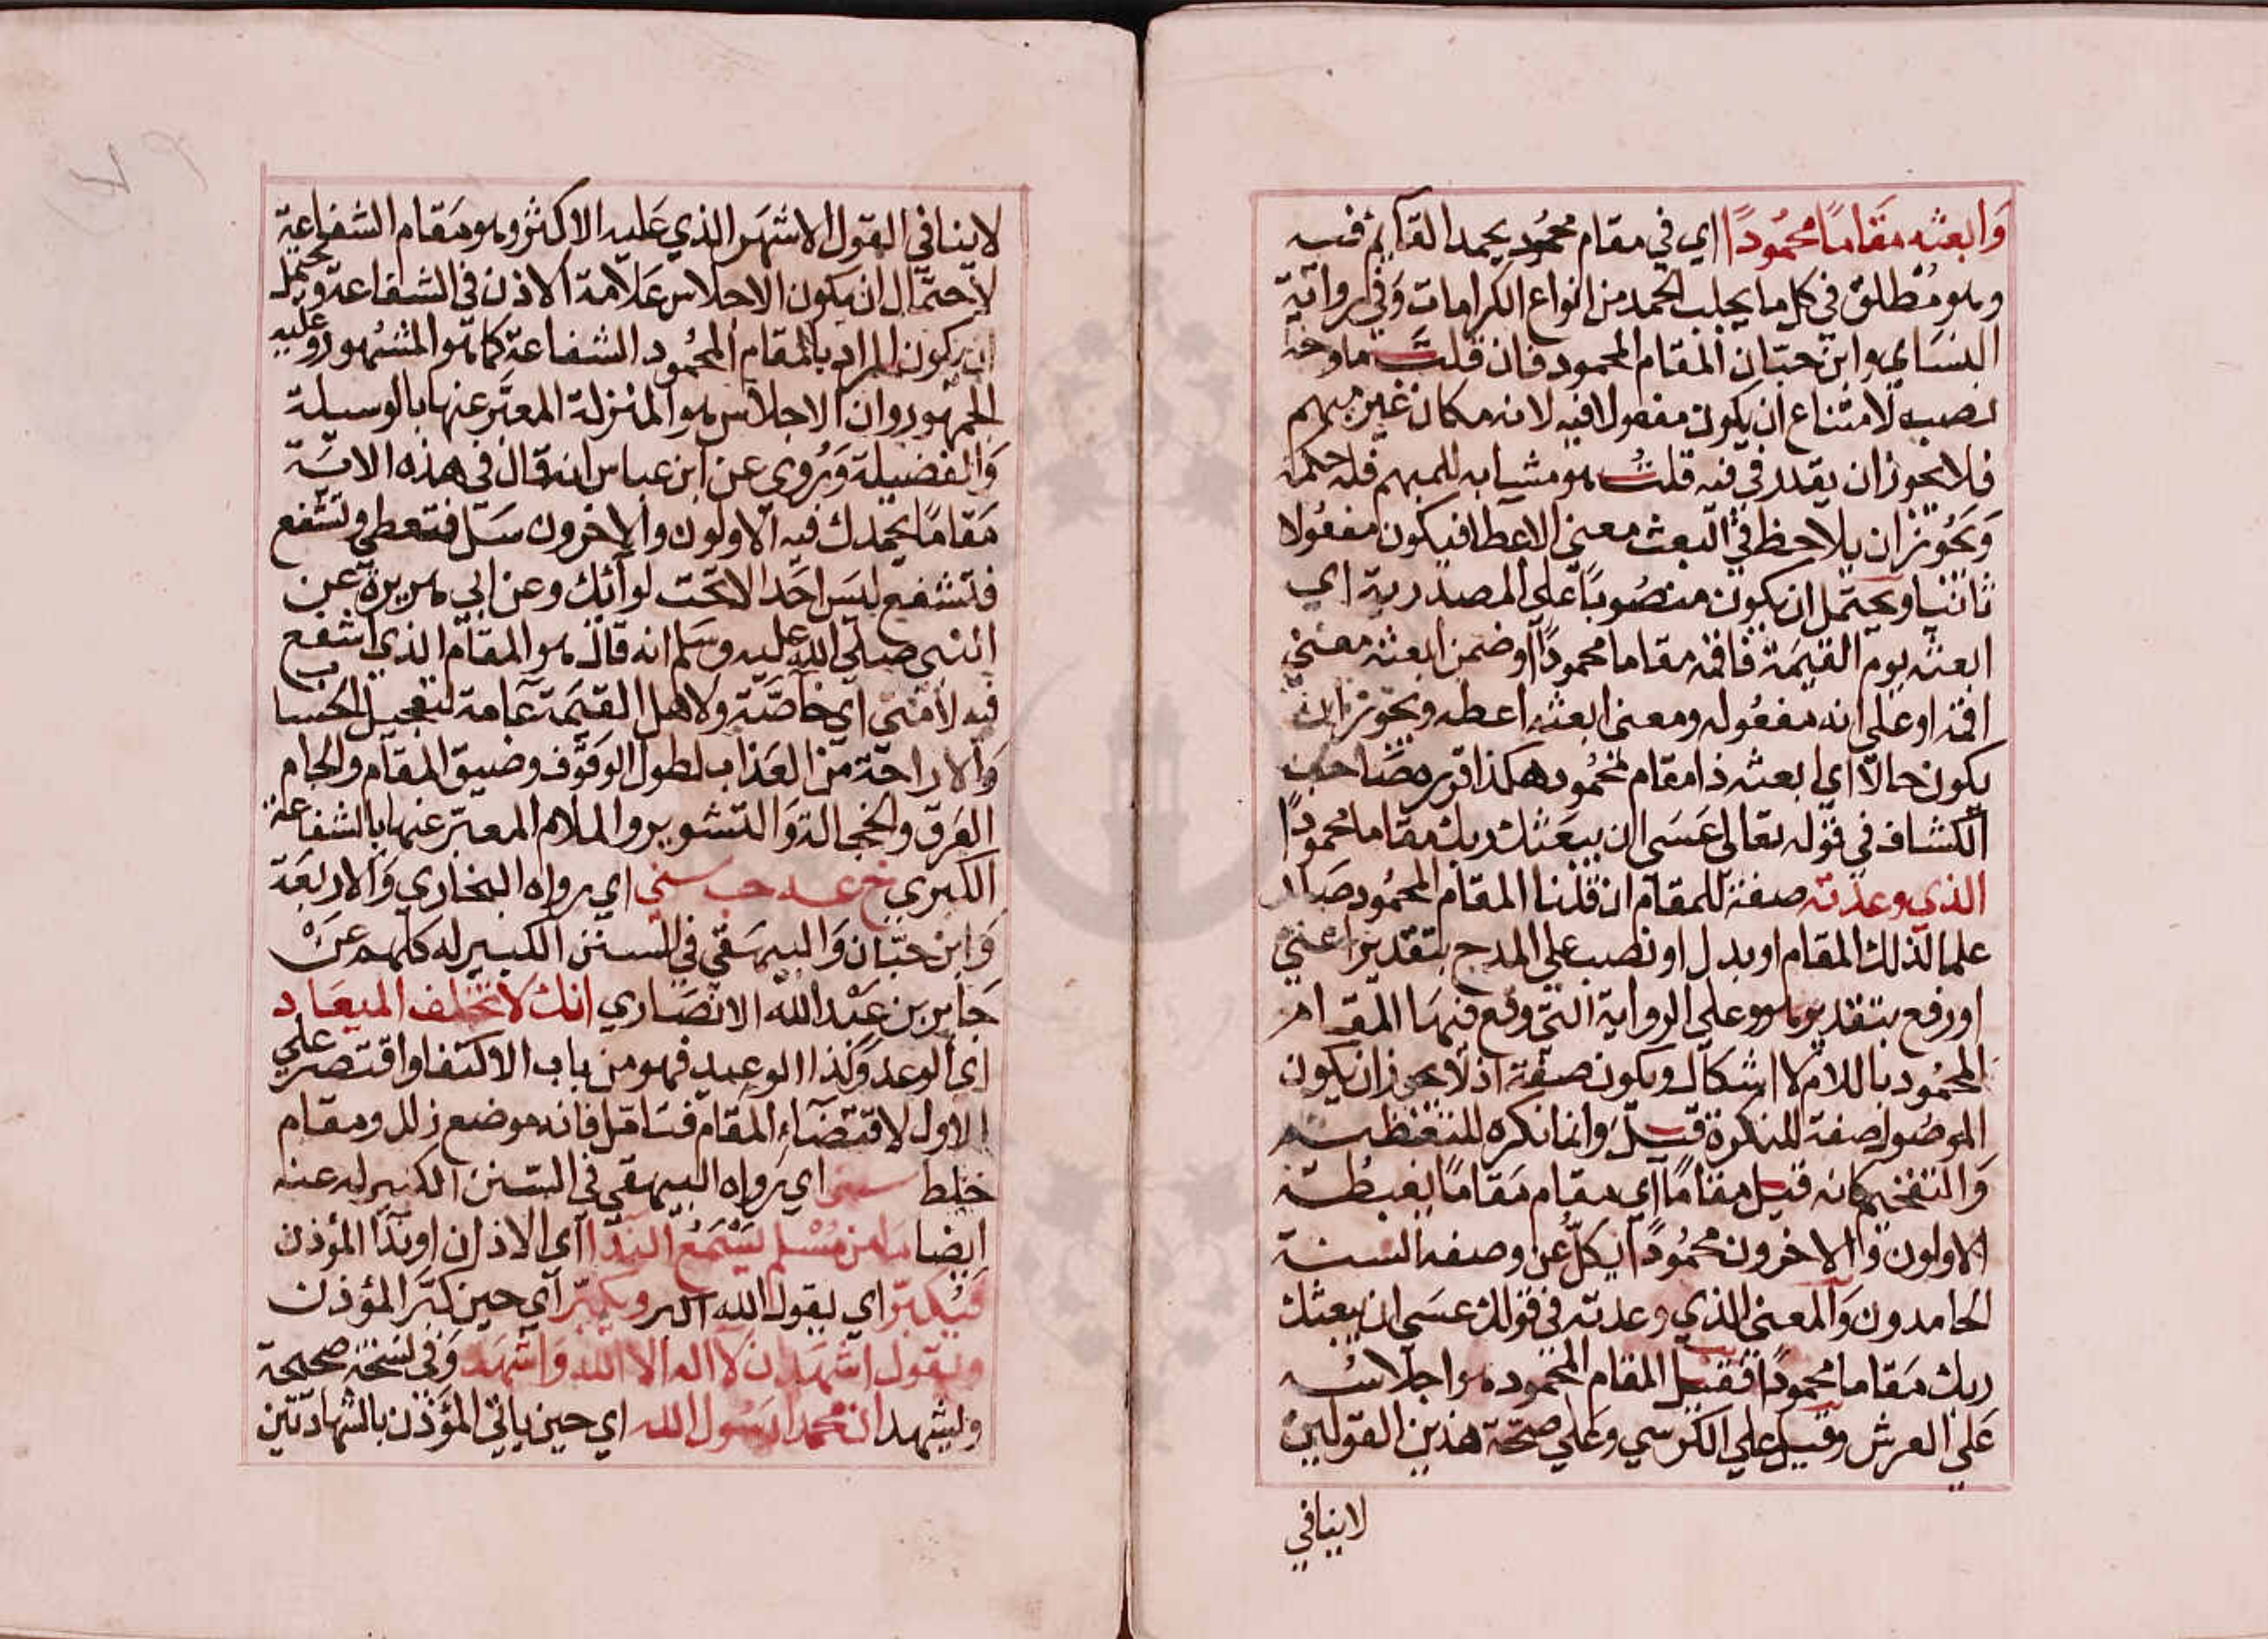 وابعثه مقاما محمودا اي في مقام محمود يحمد القآيم فيه
وهو مطلق في كل ما يجلب الحمد من انواع الكرامات وفي رواية
النساي وابن حبان المقام المحمود فان قلت ما وجه
نصبه لامتناع ان يكون مفعولا فيه لانه مكان غير مبهم
فلا يجوز ان يقدر في فيه قلت هو مشابه للمبهم فله حكمه
ويجوز ان يلاحظ في البعث معنى الاعطا فيكون مفعولا
ثانيا ويحتمل ان يكون منصوبا على المصدرية اي
ابعثه يوم القيمة فاقمه مقاما محمودا او ضمن ابعثه معنى
اقمه او على انه مفعوله ومعنى ابعثه اعطه ويجوز ان
يكون حالا اي ابعثه ذا مقام محمود هكذا قرره صاحب
الكشاف في قوله تعالى عسى ان يبعثك ربك مقاما محمودا
الذي وعدته صفة للمقام ان قلنا المقام المحمود صار
علما لذلك المقام او بدل او نصب على المدح بتقدير اعني
او رفع بتقدير هو وعلى الرواية التي وقع فيها المقام
المحمود باللام لا اشكال ويكون صفة اذ لا يجوز ان يكون
الموصول صفة للنكرة قيل وانما نكره للتعظيم
والتفخيم كانه قيل مقاما اي مقام مقاما يغبطه
الاولون والاخرون محمودا يكل عن وصفه السنة
الحامدون والمعنى الذي وعدته في قولك عسى ان يبعثك
ربك مقاما محمودا فقيل المقام المحمود هو اجلاسه
على العرش وقيل على الكرسي وعلى صحة هذين القولين
لا ينافي
لا ينافي القول الاشهر الذي عليه الاكثر وهو مقام الشفاعة
لاحتمال ان يكون الاجلاس علامة الاذن في الشفاعة ويحتمل
ان يكون المراد بالمقام المحمود الشفاعة كما هو المشهور وعليه
الجمهور وان الاجلاس هو المنزلة المعبر عنها بالوسيلة
والفضيلة وروي عن ابن عباس انه قال في هذه الاية
مقاما يحمدك فيه الاولون والاخرون سل فتعطي وتشفع
فتشفع ليس احد الا تحت لوآئك وعن ابي هريرة عن
النبي صلي الله عليه وسلم انه قال هو المقام الذي اشفع
فيه لامتي اي خاصة ولاهل القيمة عامة لتعجيل الحساب
والاراحة من العذاب لطول الوقوف وضيق المقام والجام
العرق والخجالة والتشوير والملام المعبر عنها بالشفاعة
الكبري خ عه حب سني اي رواه البخاري والاربعة
وابن حبان والبيهقي في السنن الكبير له كلهم عن
جابر بن عبد الله الانصاري انك لا تخلف الميعاد
اي الوعد وكذا الوعيد فهو من باب الاكتفا واقتصر على
الاول لاقتضآء المقام فتامل فانه موضع زلل ومقام
خلط سني اي رواه البيهقي في السنن الكبير له عنه
ايضا ما من مسلم يسمع الندا اي الاذان او ندآ المؤذن
فيكبر اي يقول الله اكبر ويكبر اي حين كبر المؤذن
ويقول اشهد ان لا اله الا الله واشهد وفي نسخة صحيحة
وليشهد ان محمدا رسول الله اي حين ياتي المؤذن بالشهادتين